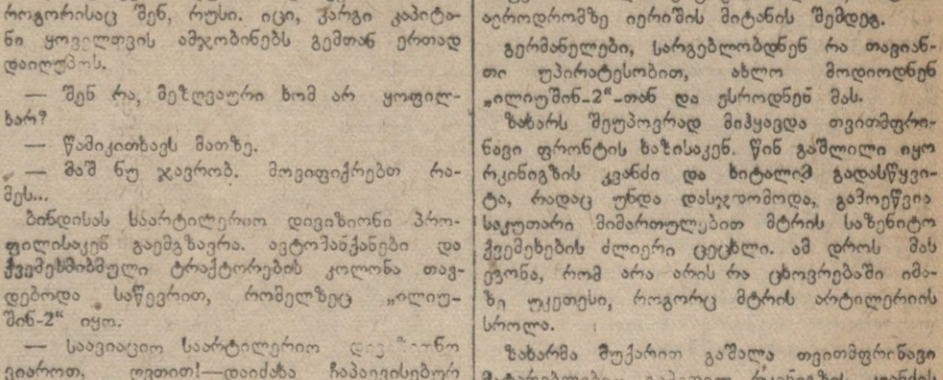 როგორისაც შენ, რუსი. იცი, კარგი კაპიტა-
ნი ყოველთვის ამჯობინებს გემთან ერთად
დაიღუპოს.
— შენ რა, მეზღვაური ხომ არ ყოფილ-
ხარ?
— წამიკითხავს მათზე.
— მაშ ნუ ჯავრობ. მოვიფიქრებთ რა-
მეს...
ბინდისას საარტილერიო დივიზიონი პრო-
ფილისაკენ გაემგზავრა. ავტომანქანები და
ქვემეხმიბმული ტრაქტორების კოლონა თავ-
დებოდა საწევრით, რომელზეც „ილიუ-
შინ-2“ იყო.
— საავიაციო საარტილერიო
ვიაროთ, ღვთით!—დაიძახა ჩაპაევისებურ
აეროდრომზე იერიშის მიტანის შემდეგ.
გერმანელები, სარგებლობდნენ რა თავიან-
თი უპირატესობით, ახლო მოდიოდნენ
„ილიუშინ-2“-თან და ესროდნენ მას.
ზახარს შეუპოვრად მიჰყავდა თვითმფრი-
ნავი ფრონტის ხაზისაკენ. წინ გაშლილი იყო
რკინიგზის კვანძი და ხიტალიმ გადასწყვი-
ტა, რადაც უნდა დასჯდომოდა, გამოეწვია
საკუთარი მიმართულებით მტრის საზენიტო
ქვემეხების ძლიერი ცეცხლი. ამ დროს მას
ეგონა, რომ არა არის რა ცხოვრებაში იმა-
ზე უკეთესი, როგორც მტრის არტილერიის
სროლა.
ზახარმა მუქარით გაშალა თვითმფრინავი